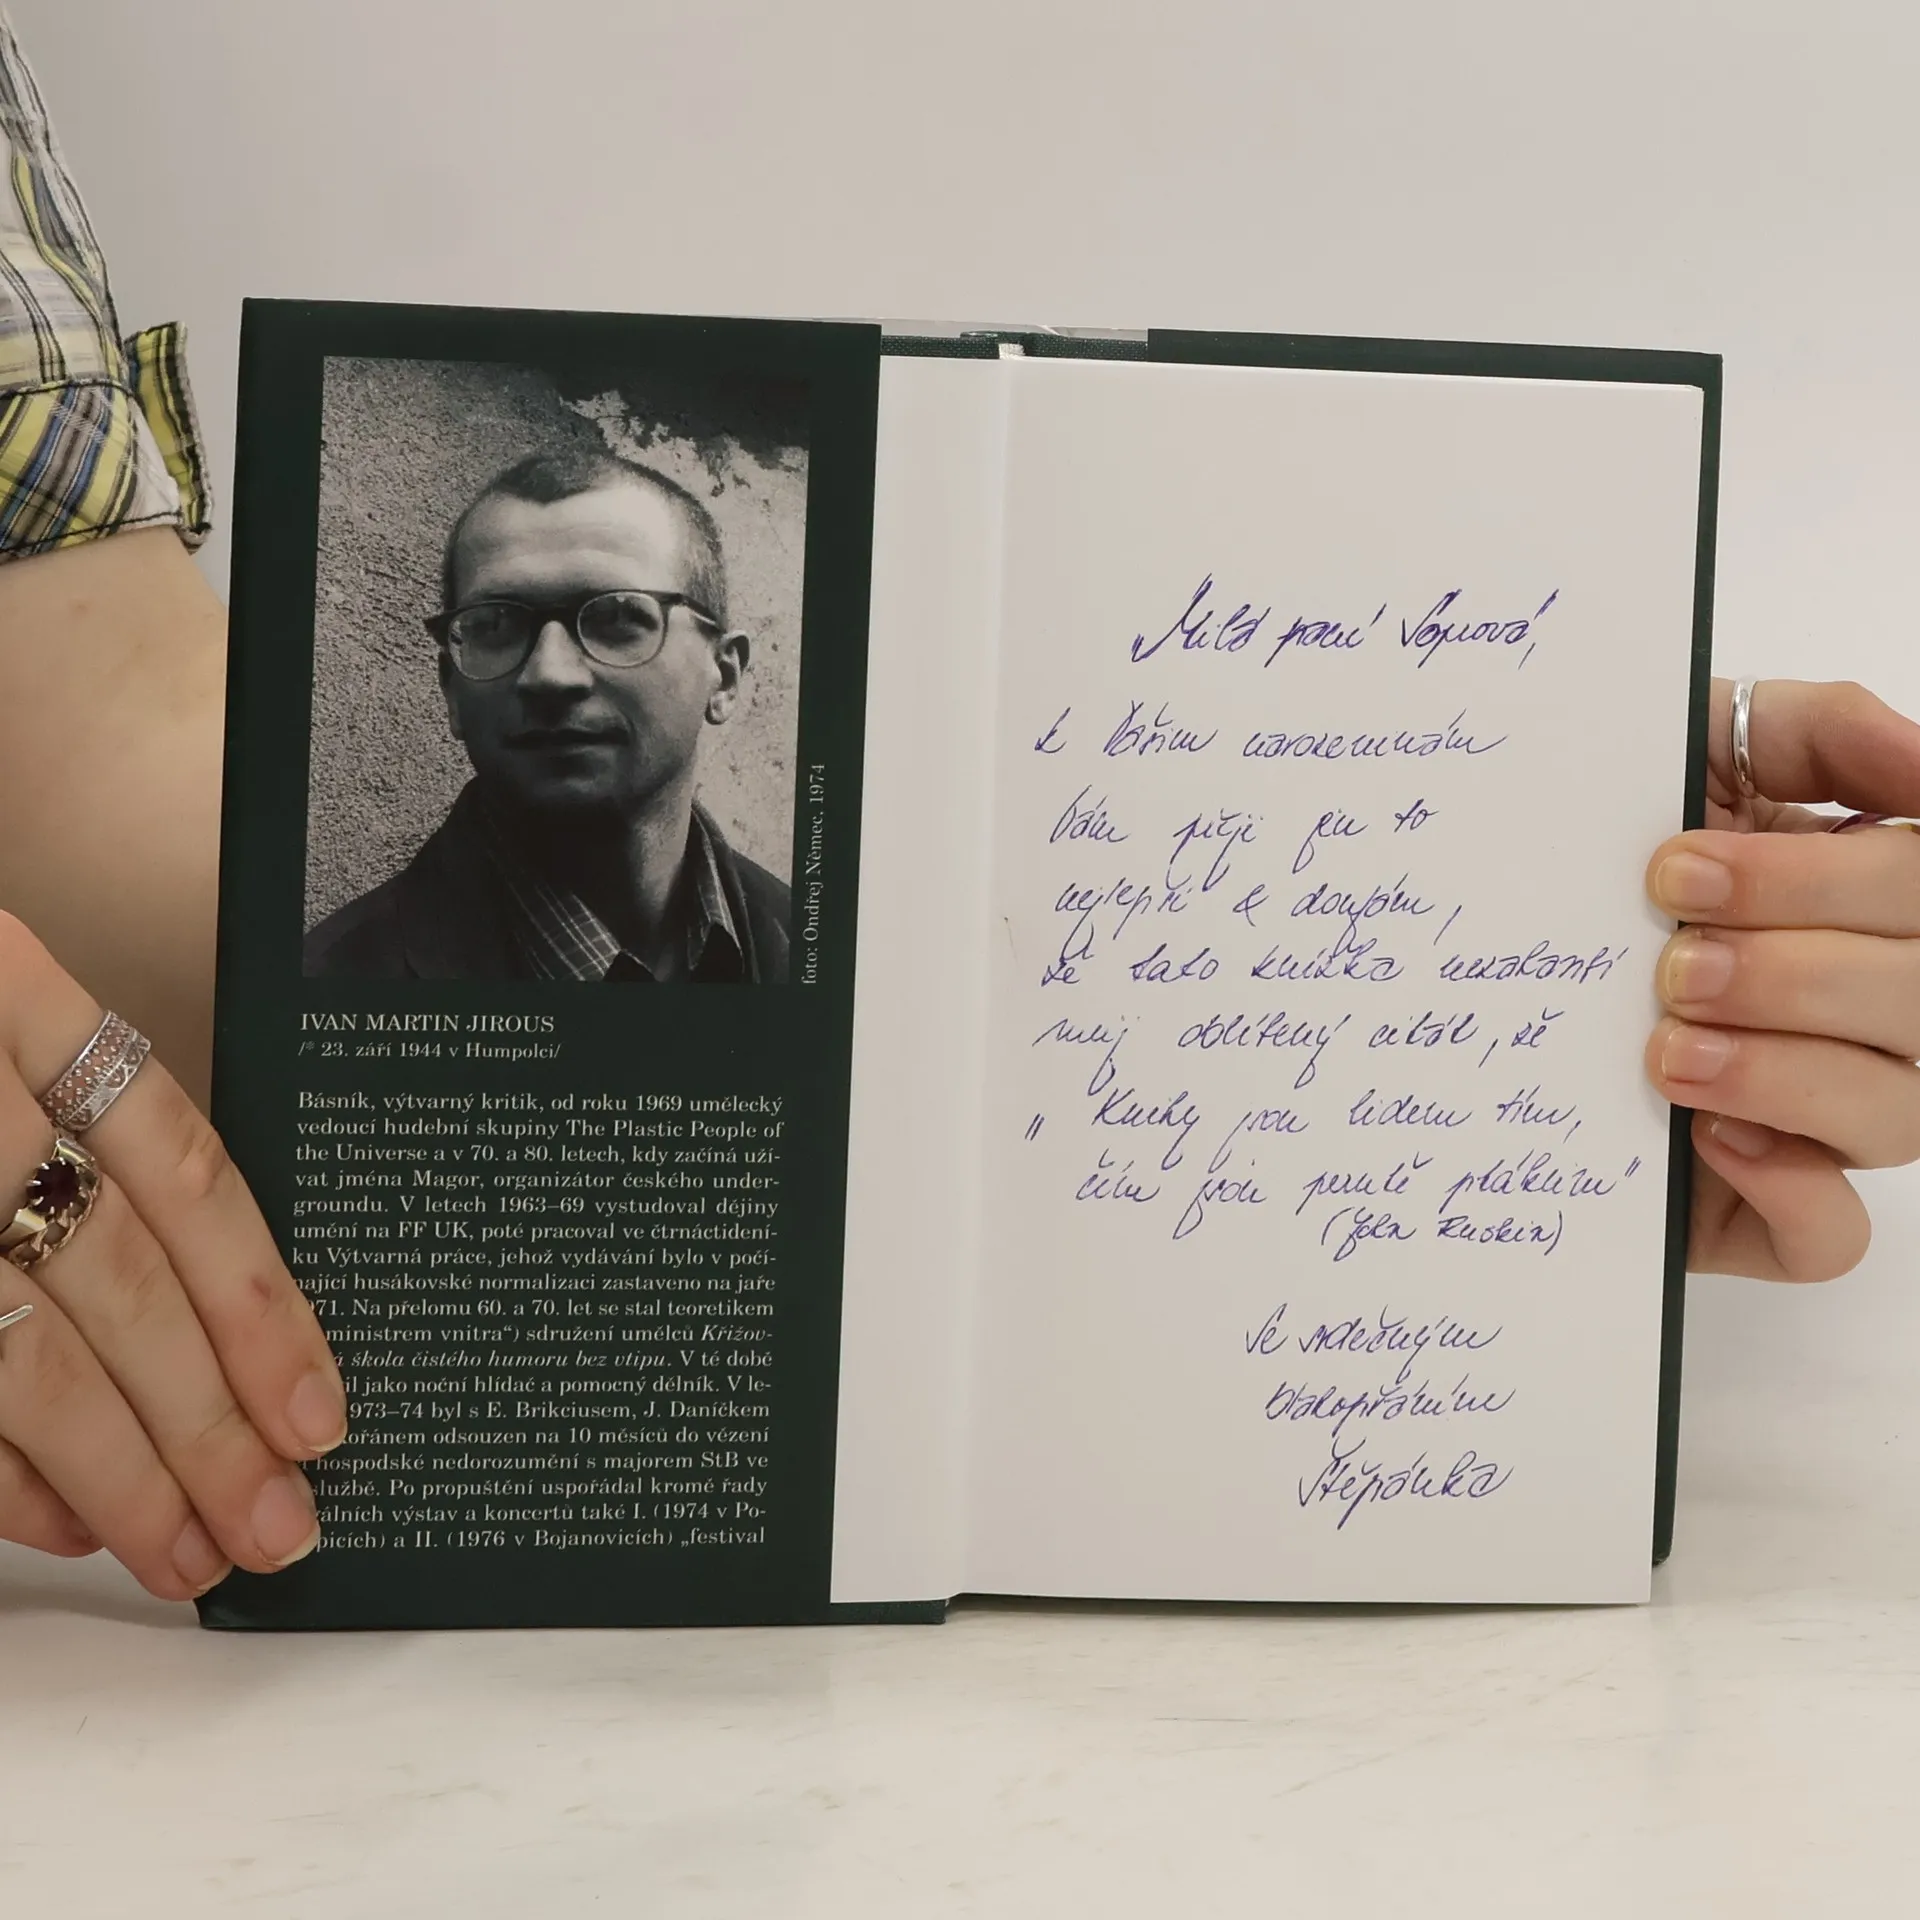 foto: Ondřej Němec, 1974
IVAN MARTIN JIROUS
/* 23. září 1944 v Humpolci/
Básník, výtvarný kritik, od roku 1969 umělecký
vedoucí hudební skupiny The Plastic People of
the Universe a v 70. a 80. letech, kdy začíná uží-
vat jména Magor, organizátor českého under-
groundu. V letech 1963–69 vystudoval dějiny
umění na FF UK, poté pracoval ve čtrnáctidení-
ku Výtvarná práce, jehož vydávání bylo v počí-
nající husákovské normalizaci zastaveno na jaře
71. Na přelomu 60. a 70. let se stal teoretikem
ministrem vnitra“) sdružení umělců Křižov-
á škola čistého humoru bez vtipu. V té době
il jako noční hlídač a pomocný dělník. V le-
973–74 byl s E. Brikciusem, J. Daníčkem
kořánem odsouzen na 10 měsíců do vězení
hospodské nedorozumění s majorem StB ve
službě. Po propuštění uspořádal kromě řady
álních výstav a koncertů také I. (1974 v Po-
picích) a II. (1976 v Bojanovicích) „festival
„Milá paní
k Vašim narozeninám
Vám přeji jen to
nejlepší & doufám,
že tato knížka nezahanbí
můj oblíbený citát, že
„Knihy jsou lidem tím,
čím jsou perutě ptákům“
(John Ruskin)
Se srdečným
blahopřáním
Štěpánka